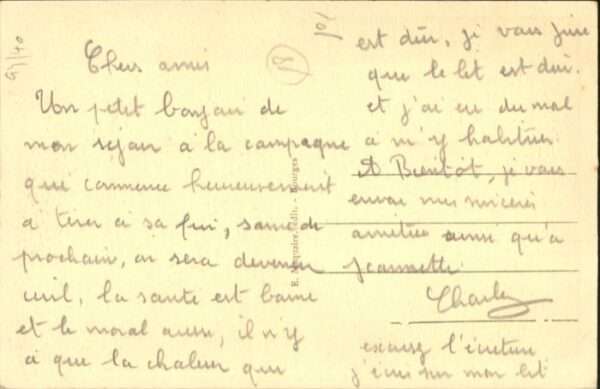 Chers amis
Un petit bonjour de
mon séjour à la campagne
qui commence heureusement
à tirer à sa fin, samedi
prochain, on sera devenu
civil, la santé est bonne
et le moral aussi, il n'y
à que la chaleur qui
est dur, je vous jure
que le lit est dur.
et j'ai eu du mal
à m'y habituer.
A Bientôt, je vous
envoi mes sincères
amitiés ainsi qu'a
Jeannette
Charles
excusez l'écriture
j'écris sur mon lit
édit. - Bourges
8